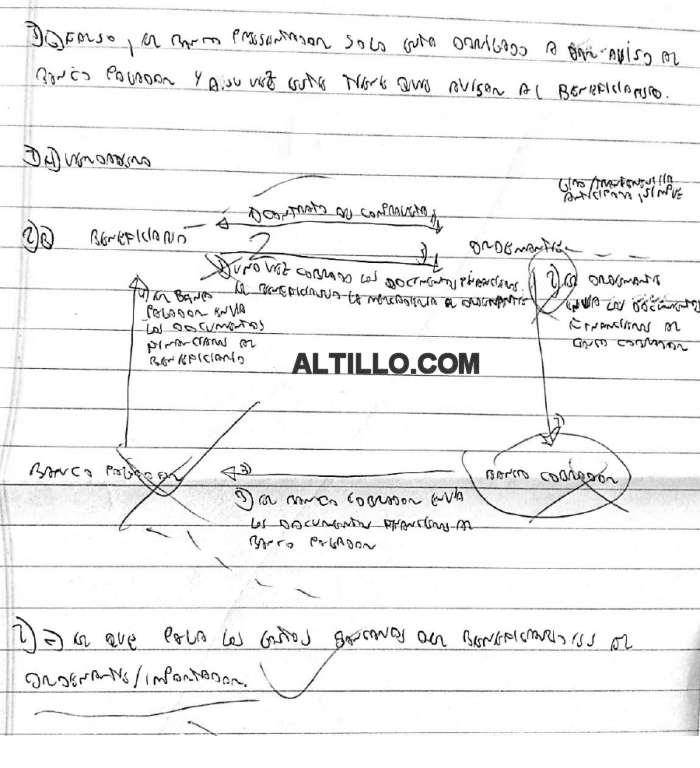 3) G) FALSO, EL BANCO PRESENTADOR SOLO ESTA OBLIGADO A DAR AVISO AL
BANCO PAGADOR Y A SU VEZ ESTE TIENE QUE AVISAR AL BENEFICIARIO.
3) H) VERDADERO
GIRO/TRANSFERENCIA
ANTICIPADA, SIMPLE
1) CONTRATO DE COMPRAVENTA
2) a) BENEFICIARIO
2
ORDENANTE
5) UNA VEZ COBRADO LOS DOCUMENTOS FINANCIEROS
EL BENEFICIARIO LA MERCADERIA AL ORDENANTE
2) EL ORDENANTE
ENVIA LOS DOCUMENTOS
FINANCIEROS AL
BANCO COBRADOR
4) EL BANCO
PAGADOR ENVIA
LOS DOCUMENTOS
FINANCIEROS AL
BENEFICIARIO
ALTILLO.COM
BANCO PAGADOR
3)
BANCO COBRADOR
3) EL BANCO COBRADOR ENVIA
LOS DOCUMENTOS FINANCIEROS AL
BANCO PAGADOR
EL QUE PAGA LOS GASTOS BANCARIOS DEL BENEFICIARIO ES EL
ORDENANTE/IMPORTADOR.